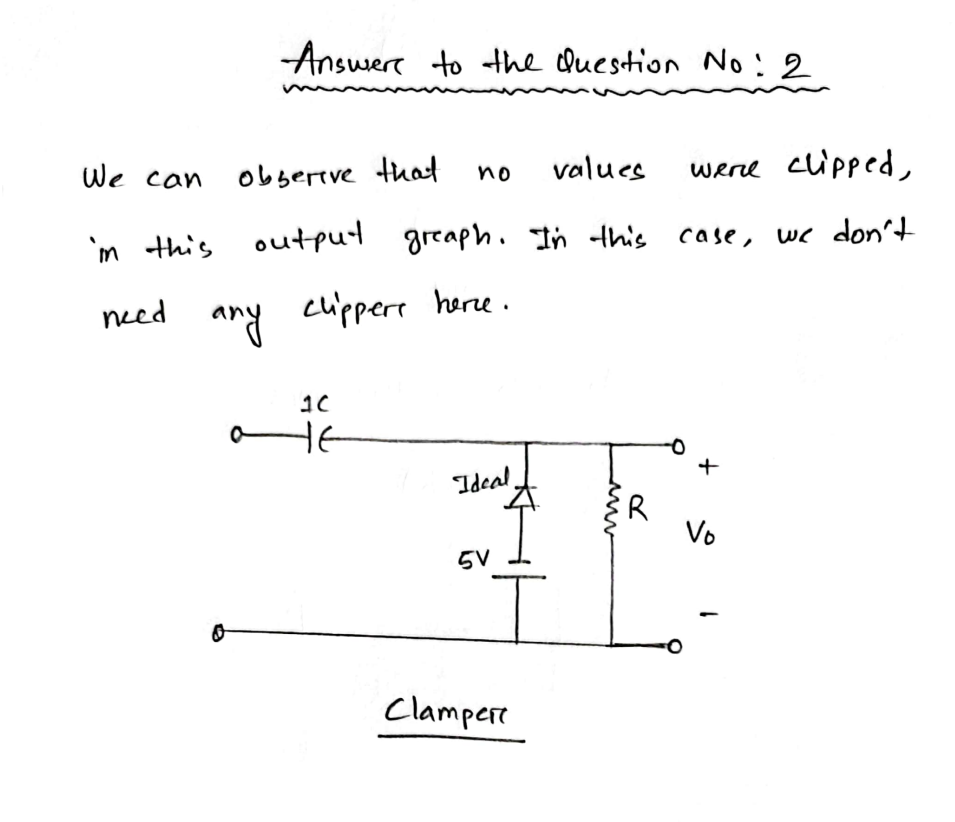 Answer to the Question No: 2
We can observe that no values were clipped,
in this output graph. In this case, we don't
need any clipper here.
1C
Ideal
+
R
Vo
5V
-
Clamper